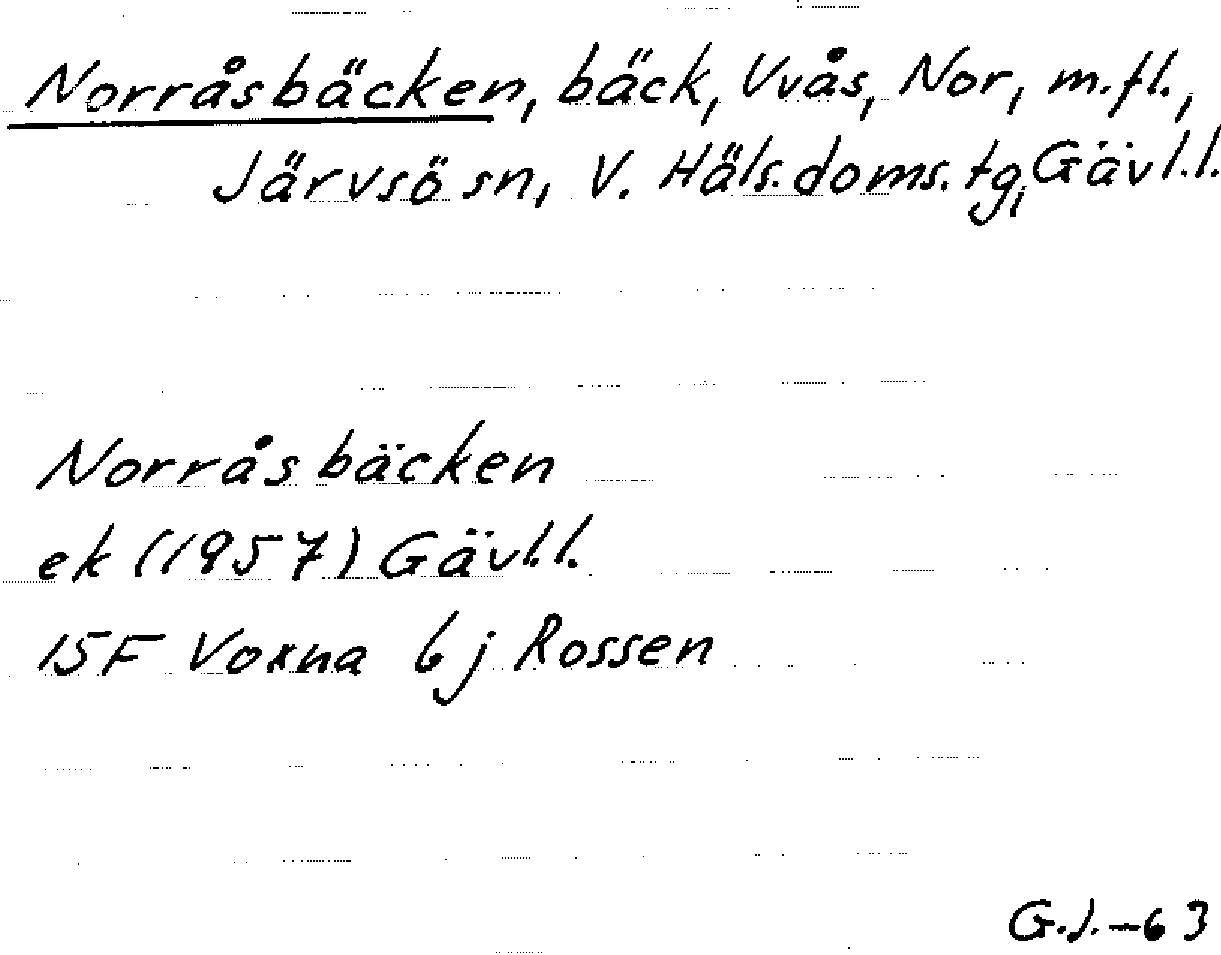 Norråsbäcken, bäck, Vvås, Nor, m.fl.,
Järvsö sn, V. Häls. doms. tg, Gävl.l.
Norråsbäcken
ek (1957) Gävl.l.
15F Voxna 6j Rossen
G.J.-63